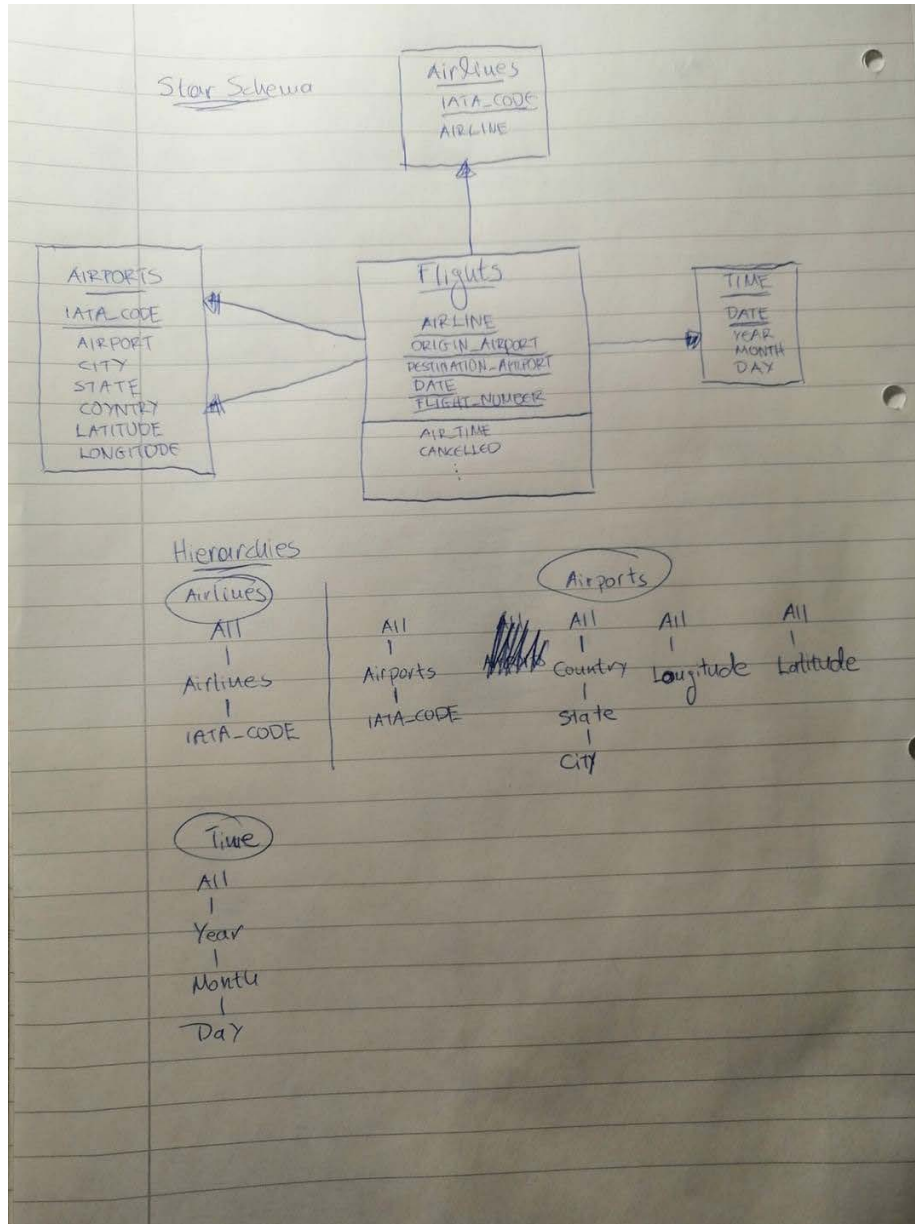 Star Schema
Airlines
IATA_CODE
AIRLINE
AIRPORTS
IATA_CODE
AIRPORT
CITY
STATE
COYNTRY
LATITUDE
LONGITUDE
Flights
AIRLINE
ORIGIN_AIRPORT
DESTINATION_AIRPORT
DATE
FLIGHT_NUMBER
AIR_TIME
CANCELLED
:
TIME
DATE
YEAR
MONTH
DAY
Hierarchies
Airlines
All
Airlines
IATA_CODE
Airports
All
Airports
IATA_CODE
All
Country
State
City
All
Longitude
All
Latitude
Time
All
Year
Month
Day